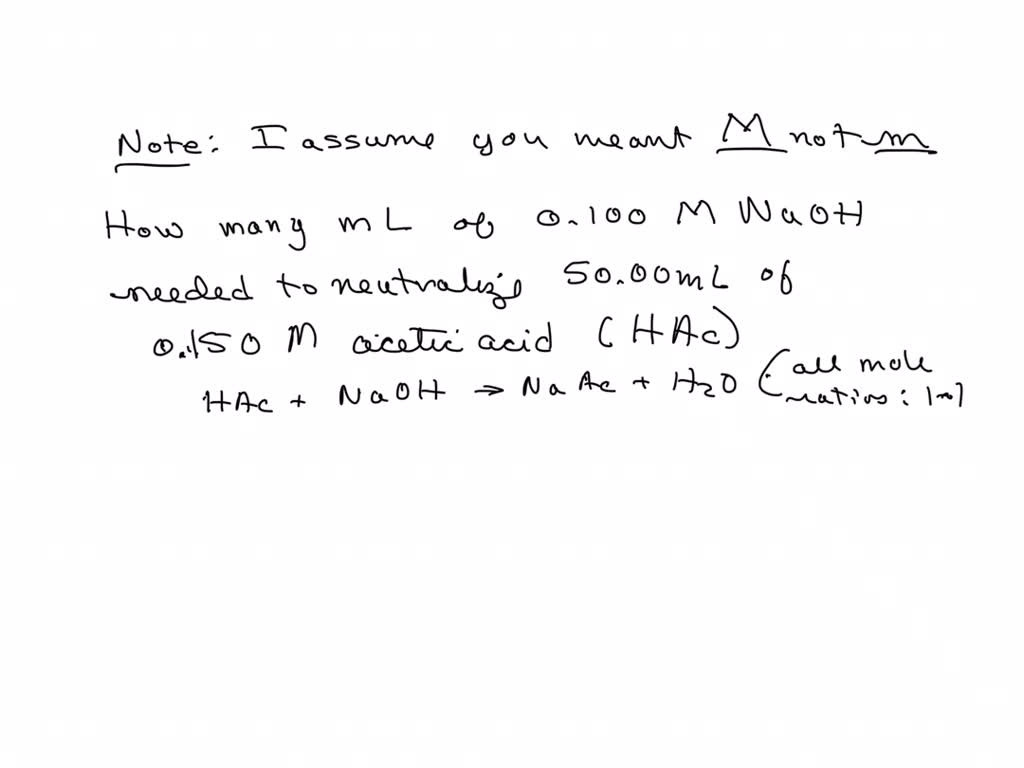 Note: I assume you meant M not m
How many mL of 0.100 M NaOH
needed to neutralize 50.00mL of
0.150 M acetic acid (HAc)
HAc + NaOH → NaAc + H2O (all mole
ratios: 1→1